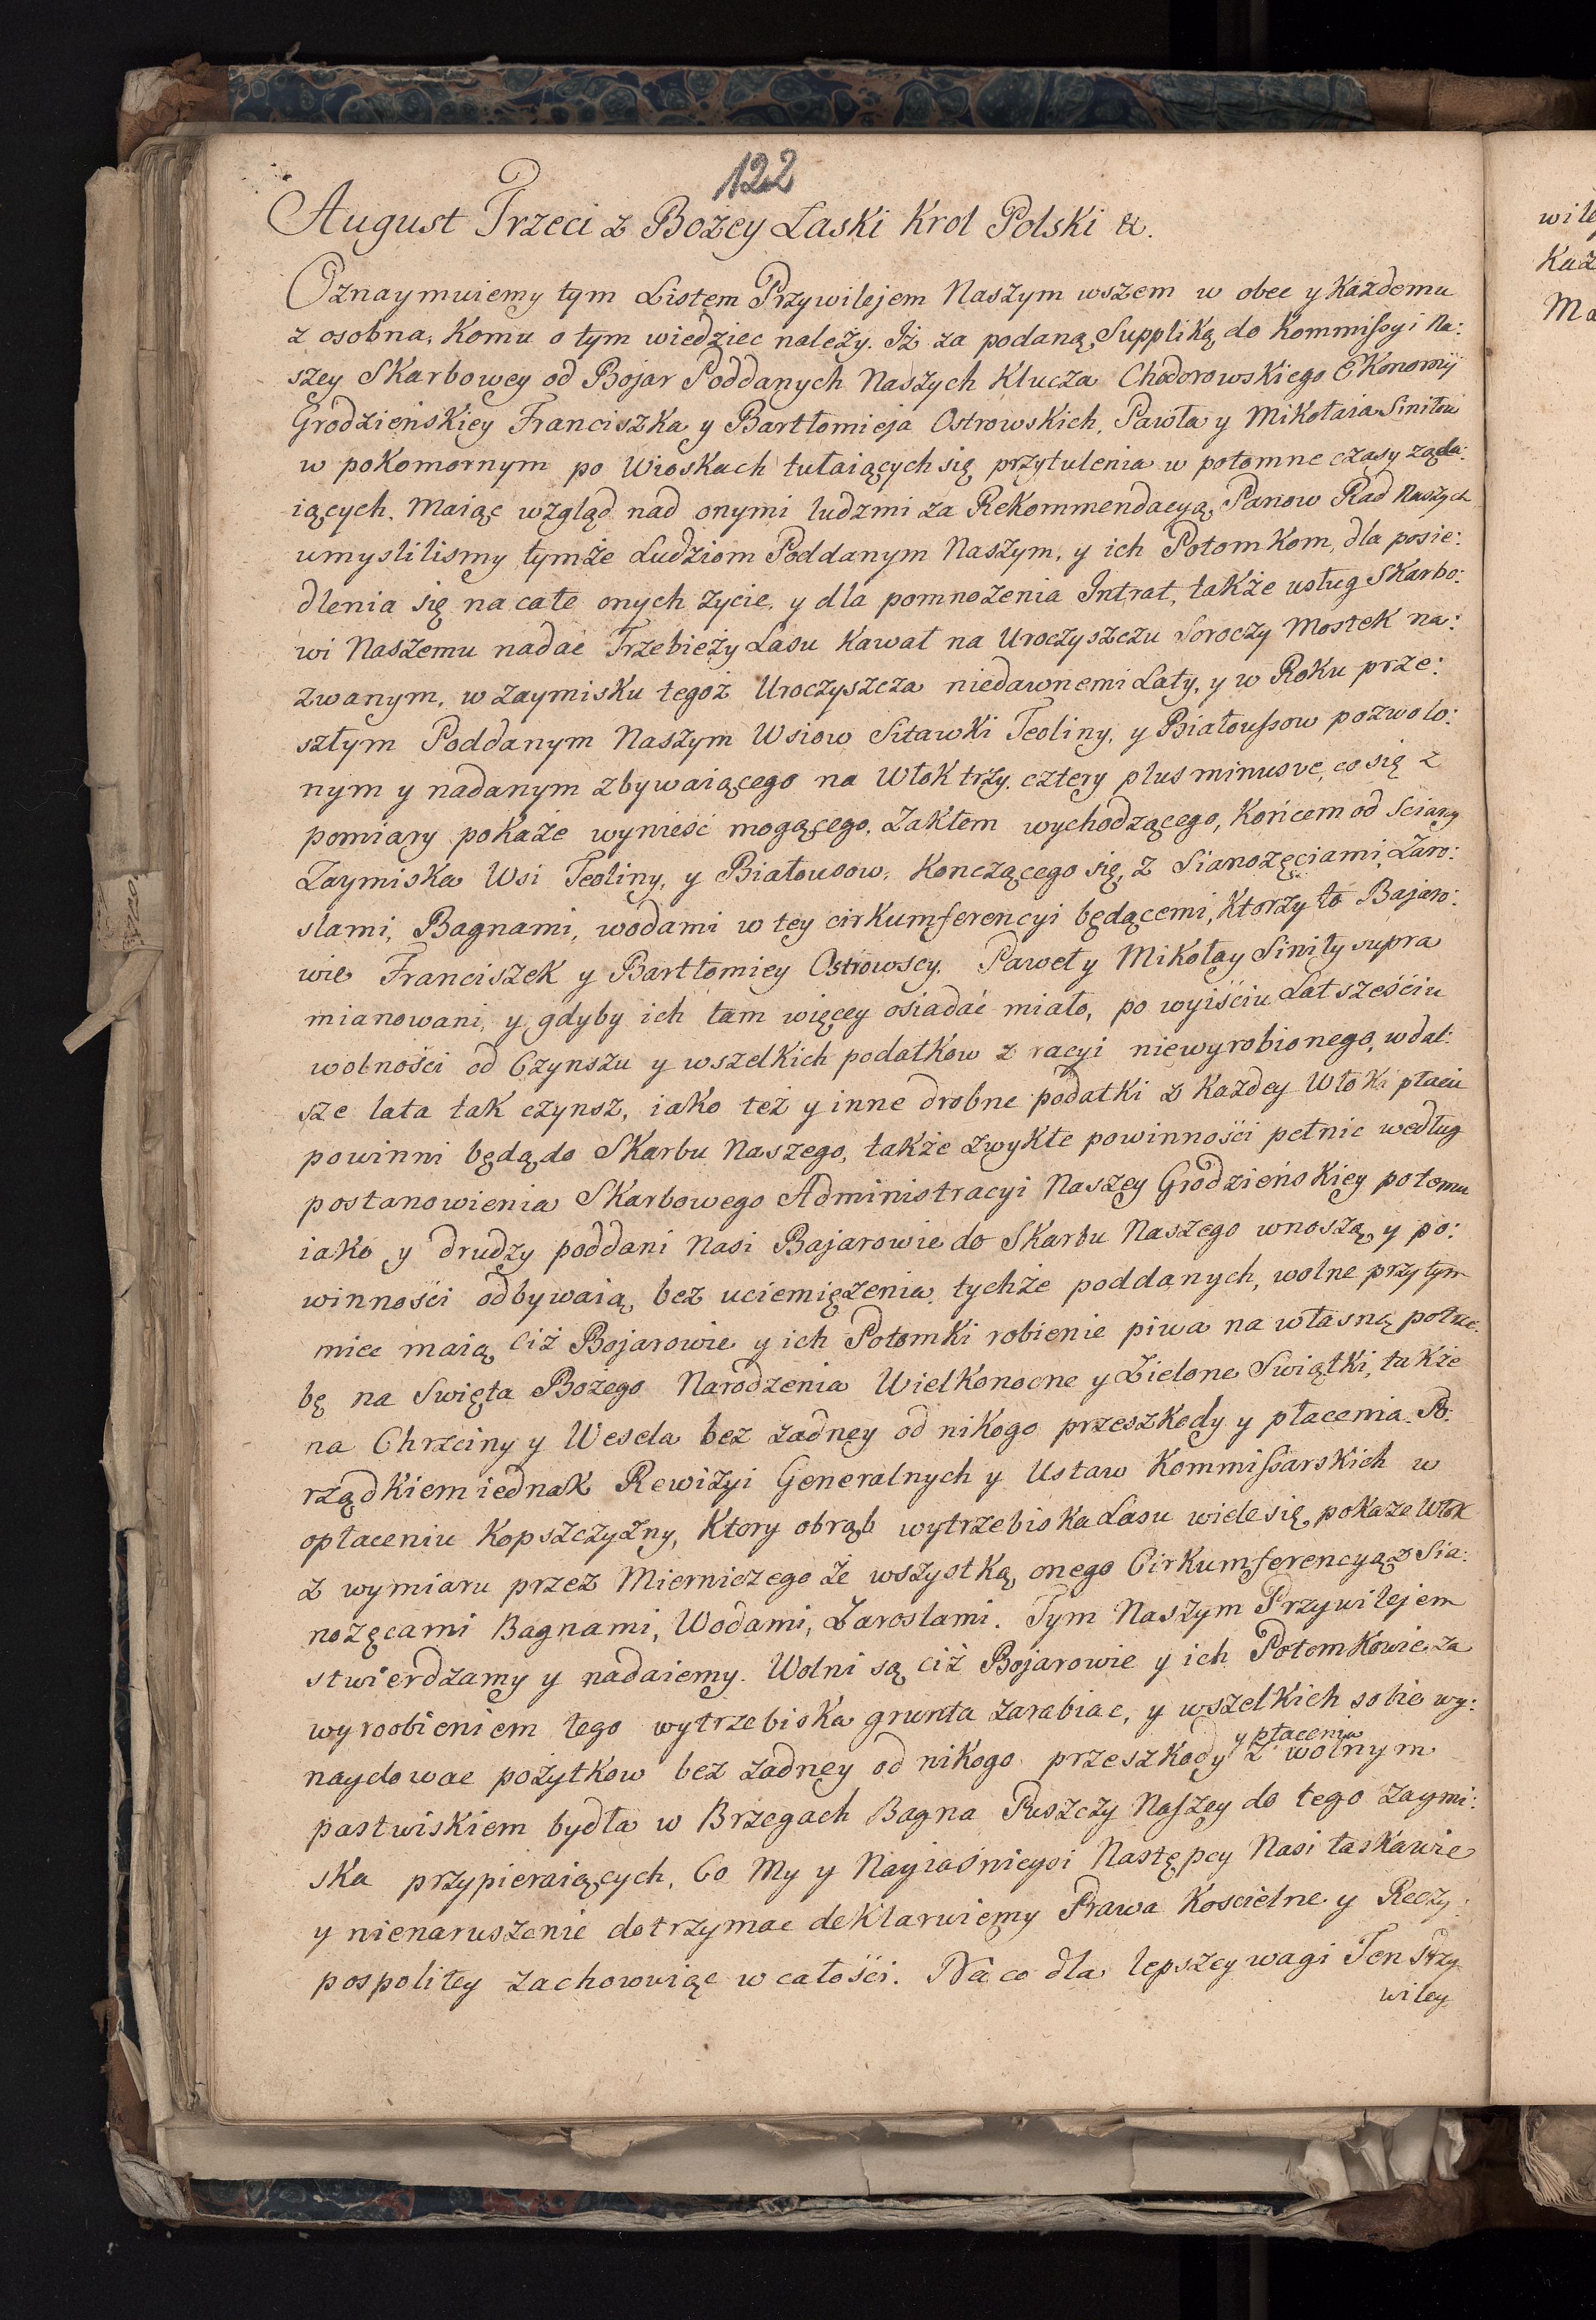 122
August Trzeci z Bożey Laski Krol Polski &.
Oznaymuiemy tym Listem Przywilejem Naszym wszem w obec y Każdemu
z osobna, Komu o tym wiedziec należy. Iż za podaną Suppliką do Kommissyi Na:
szey Skarbowey od Bojar Poddanych Naszych Klucza Chodorowskiego Ekonomij
Grodzieńskiey Franciszka y Bartłomieja Ostrowskich, Pawła y Mikołaia Siniłow
w pokomornym po Wioskach tułaiących się przytulenia w potomne czasy żąda:
iących. Maiąc wzgląd nad onymi ludzmi za Rekommendacyą Panow Rad Naszych
umyslilismy tymże Ludziom Poddanym Naszym, y ich Potomkom, dla posie:
dlenia się na całe onych życie, y dla pomnożenia Intrat, także usług Skarbo:
wi Naszemu nadac Trzebieży Lasu Kawał na Uroczyszczu Soroczy Mostek na:
zwanym, w Zaymisku tegoż Uroczyszcza niedawnemi Laty, y w Roku prze:
szłym Poddanym Naszym Wsiow Sitawki Teoliny, y Białoussow pozwolo:
nym y nadanym zbywaiącego na Włok trzy, cztery plus minusve, co się z
pomiary pokaże wynieść mogącego, Zakłem wychodzącego, Końcem od Sciany
Zaymiska Wsi Teoliny, y Białousow, Konczącego się, z Sianożęciami, Zaro:
slami, Bagnami, wodami w tey cirkumferencyi będącemi, Ktorzy to Bajaro:
wie Franciszek y Bartłomiey Ostrowscy, Paweł y Mikołay Siniły supra
mianowani, y gdyby ich tam więcey osiadać miało, po wyiściu Lat sześciu
wolności od Czynszu y wszelkich podatkow z racyi niewyrobionego, w dal:
sze lata tak czynsz, iako też y inne drobne podatki z Każdey Włoki płacic
powinni będą do Skarbu Naszego, także zwykłe powinności pełnic według
postanowienia Skarbowego Administracyi Naszey Grodzieńskiey potomu
iako y drudzy poddani Nasi Bajarowie do Skarbu Naszego wnoszą y po:
winności odbywaią, bez uciemiężenia tychże poddanych, wolne przytym
miec maią ciż Bojarowie y ich Potomki robienie piwa na własną potrze:
bę na Swięta Bożego Narodzenia Wielkonocne y Zielone Swiątki, także
na Chrzciny y Wesela bez żadney od nikogo przeszkody y płacenia. Po:
rządkiem iednak Rewizyi Generalnych y Ustaw Kommissarskich w
opłaceniu Kopszczyzny, Ktory obrąb wytrzebiska Lasu wiele się pokaże Włok
z wymiaru przez Mierniczego ze wszystką onego Cirkumferencyą z Sia:
nożęcami Bagnami, Wodami, Zaroslami. Tym Naszym Przywilejem
stwierdzamy y nadaiemy. Wolni są ciż Bojarowie y ich Potomkowie za
wyroobieniem tego wytrzebiska grunta zarabiac, y wszelkich sobie wy:
y płacenia
naydowac pożytkow bez żadney od nikogo przeszkody z wolnym
pastwiskiem bydła w Brzegach Bagna Puszczy Naszey do tego Zaymi:
ska przypieraiących, Co My y Nayiaśnieysi Następcy Nasi łaskawie
y nienaruszenie dotrzymac deklaruiemy Prawa Koscielne y Rzeczy:
pospolitey zachowuiąc w całości. Na co dla lepszey wagi Ten Przy
wiley
wiley
Każ
Ma